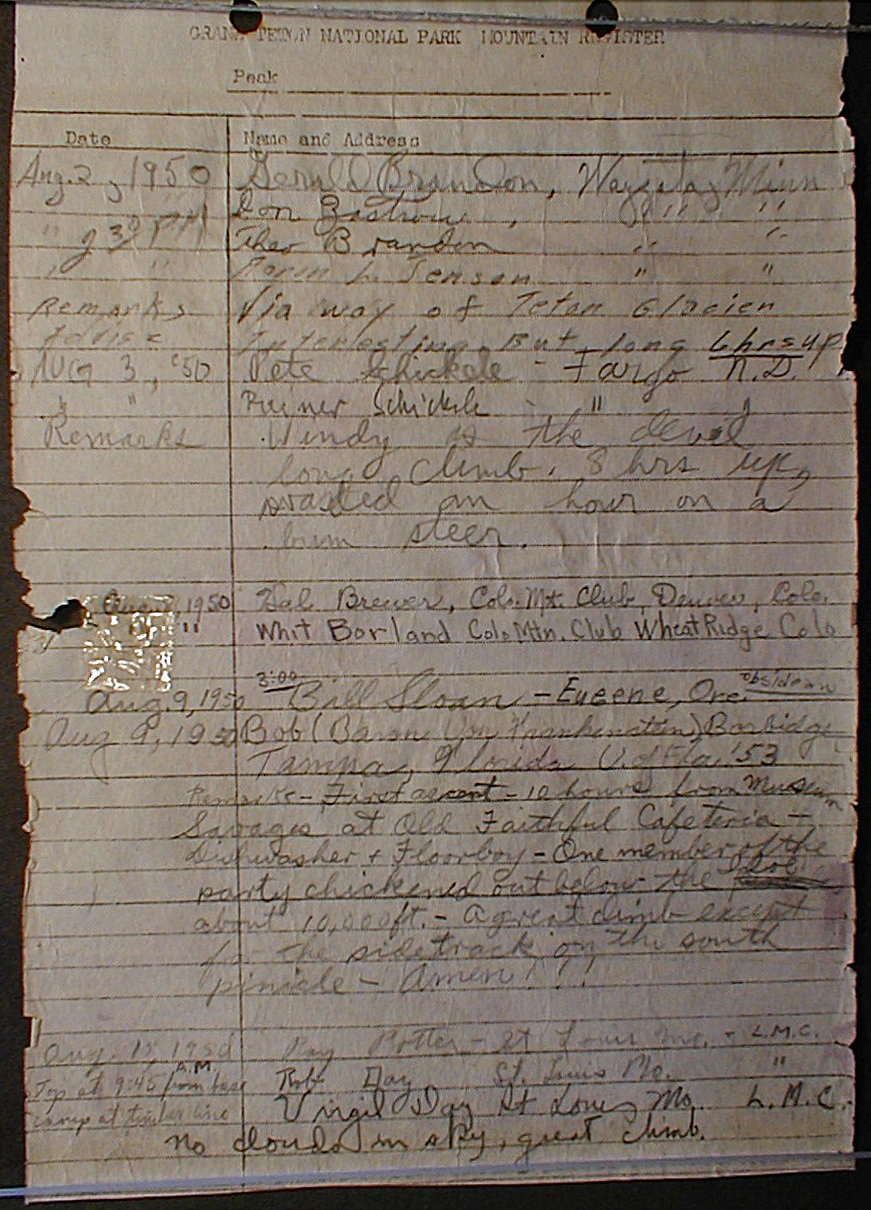 GRAND TETON NATIONAL PARK MOUNTAIN REGISTER
Peak
Date Name and Address
Aug. 2, 1950 Gerald Brandon, Wayzata, Minn
Don Zastrow, " "
" 3 PM Theo Brandon " "
" " L. Jenson " "
Remarks Via way of Teton Glacier
Interesting. But long 6 hrs up
AUG 3, '50 Pete Schickele - Fargo N.D.
" " Reiner Schickele - " "
Remarks Windy as the devil
long climb. 8 hrs up,
wasted an hour on a
bum steer.
Aug. 1950 Hal Brewer, Colo. Mt. Club, Denver, Colo.
" " Whit Borland Colo Mtn. Club Wheat Ridge Colo
Aug. 9, 1950 3:00 Bill Sloan - Eugene, Ore obsidian
Aug 9, 1950 Bob (Baron Von Frankenstein) Borbidge
Tampa, Florida U. of Fla. '53
Remarks - First ascent - 10 hours from Museum
Savages at Old Faithful Cafeteria -
Dishwasher + Floorboy - One member of the
party chickened out below the
about 10,000 ft. - A great climb except
for the sidetrack on the south
pinicle - Amen!!!
Aug. 1950 Ray Potter - St Louis Mo. - L.M.C.
Top at 9:45 A.M. from base Robt Day St. Louis Mo. "
camp at timber line Virgil Day St Louis Mo. L.M.C.
No clouds in sky, great climb.